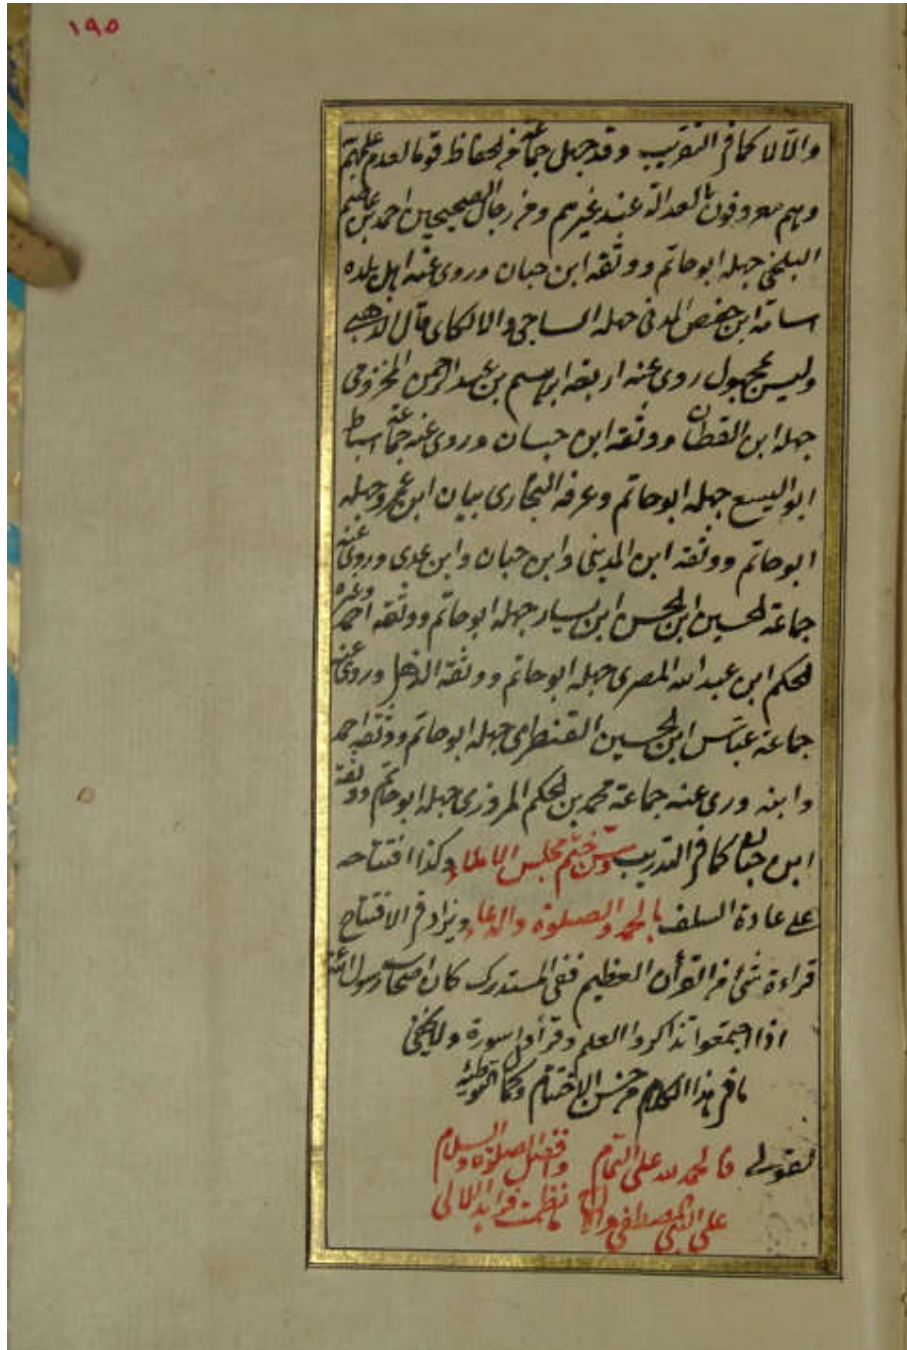 ١٩٥
والا لا كما في التقريب وقد جهل جماعة من الحفاظ قوما لعدم علمهم
وهم معروفون بالعدالة عند غيرهم ومن رجال الصحيحين احمد بن عاصم
البلخي جهله ابوحاتم ووثقه ابن حبان وروى عنه اهل بلده
اسامة ابن حفص المدني جهله الساجي والالكاى قال الذهبي
وليس بمجهول روى عنه اربعة ابراهيم بن عبد الرحمن المخزومي
جهله ابن القطان ووثقه ابن حبان وروى عنه جماعة اسباط
ابو اليسع جهله ابوحاتم وعرفه البخارى بيان ابن عمرو جهله
ابوحاتم ووثقه ابن المديني وابن حبان وابن عدى وروى عنه
جماعة الحسين ابن الحسن ابن يسار جهله ابوحاتم ووثقه احمد وغيره
الحكم ابن عبد الله المصرى جهله ابوحاتم ووثقه الذهلي وروى عنه
جماعة عباس ابن الحسين القنطرى جهله ابوحاتم ووثقه احمد
وابنه ورى عنه جماعة محمد بن الحكم المروزى جهله ابوحاتم ووثقه
ابن حبان كما في التدريب وسن ختم مجلس الاملاء وكذا افتتاحه
على عادة السلف بالحمد والصلوة والدعاء ويزاد في الافتتاح
قراءة شئ من القرأن العظيم ففى المستدرك كان اصحاب رسول الله
اذا اجتمعوا تذاكروا العلم وقرأوا سورة ولا يخفى
ما في هذا الكلام من حسن الاختتام وكمال التوطئة
لقولى فالحمد لله على التمام وافضل الصلوة والسلام
على النبي المصطفى والال ما نظمت فرايد اللالى